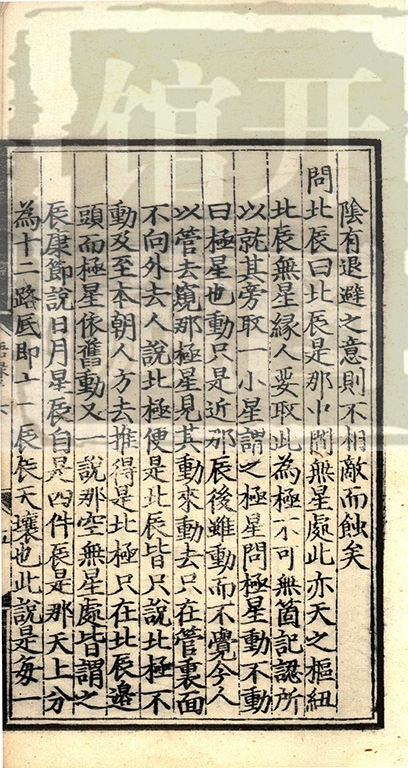 陰有退避之意則不相敵而蝕矣
問北辰曰北辰是那中間無星處此亦天之樞紐
北辰無星緣人要取此為極不可無箇記認所
以就其旁取一小星謂之極星問極星動不動
曰極星也動只是近那辰後雖動而不覺今人
以管去窺那極星見其動來動去只在管裏面
不向外去人說北極便是北辰皆只說北極不
動至本朝人方去推得是北極只在北辰邉
頭而極星依舊動又一說那空無星處皆謂之
辰康節說日月星辰自是四件辰是那天上分
為十二路底即十辰天壤也此說是每一